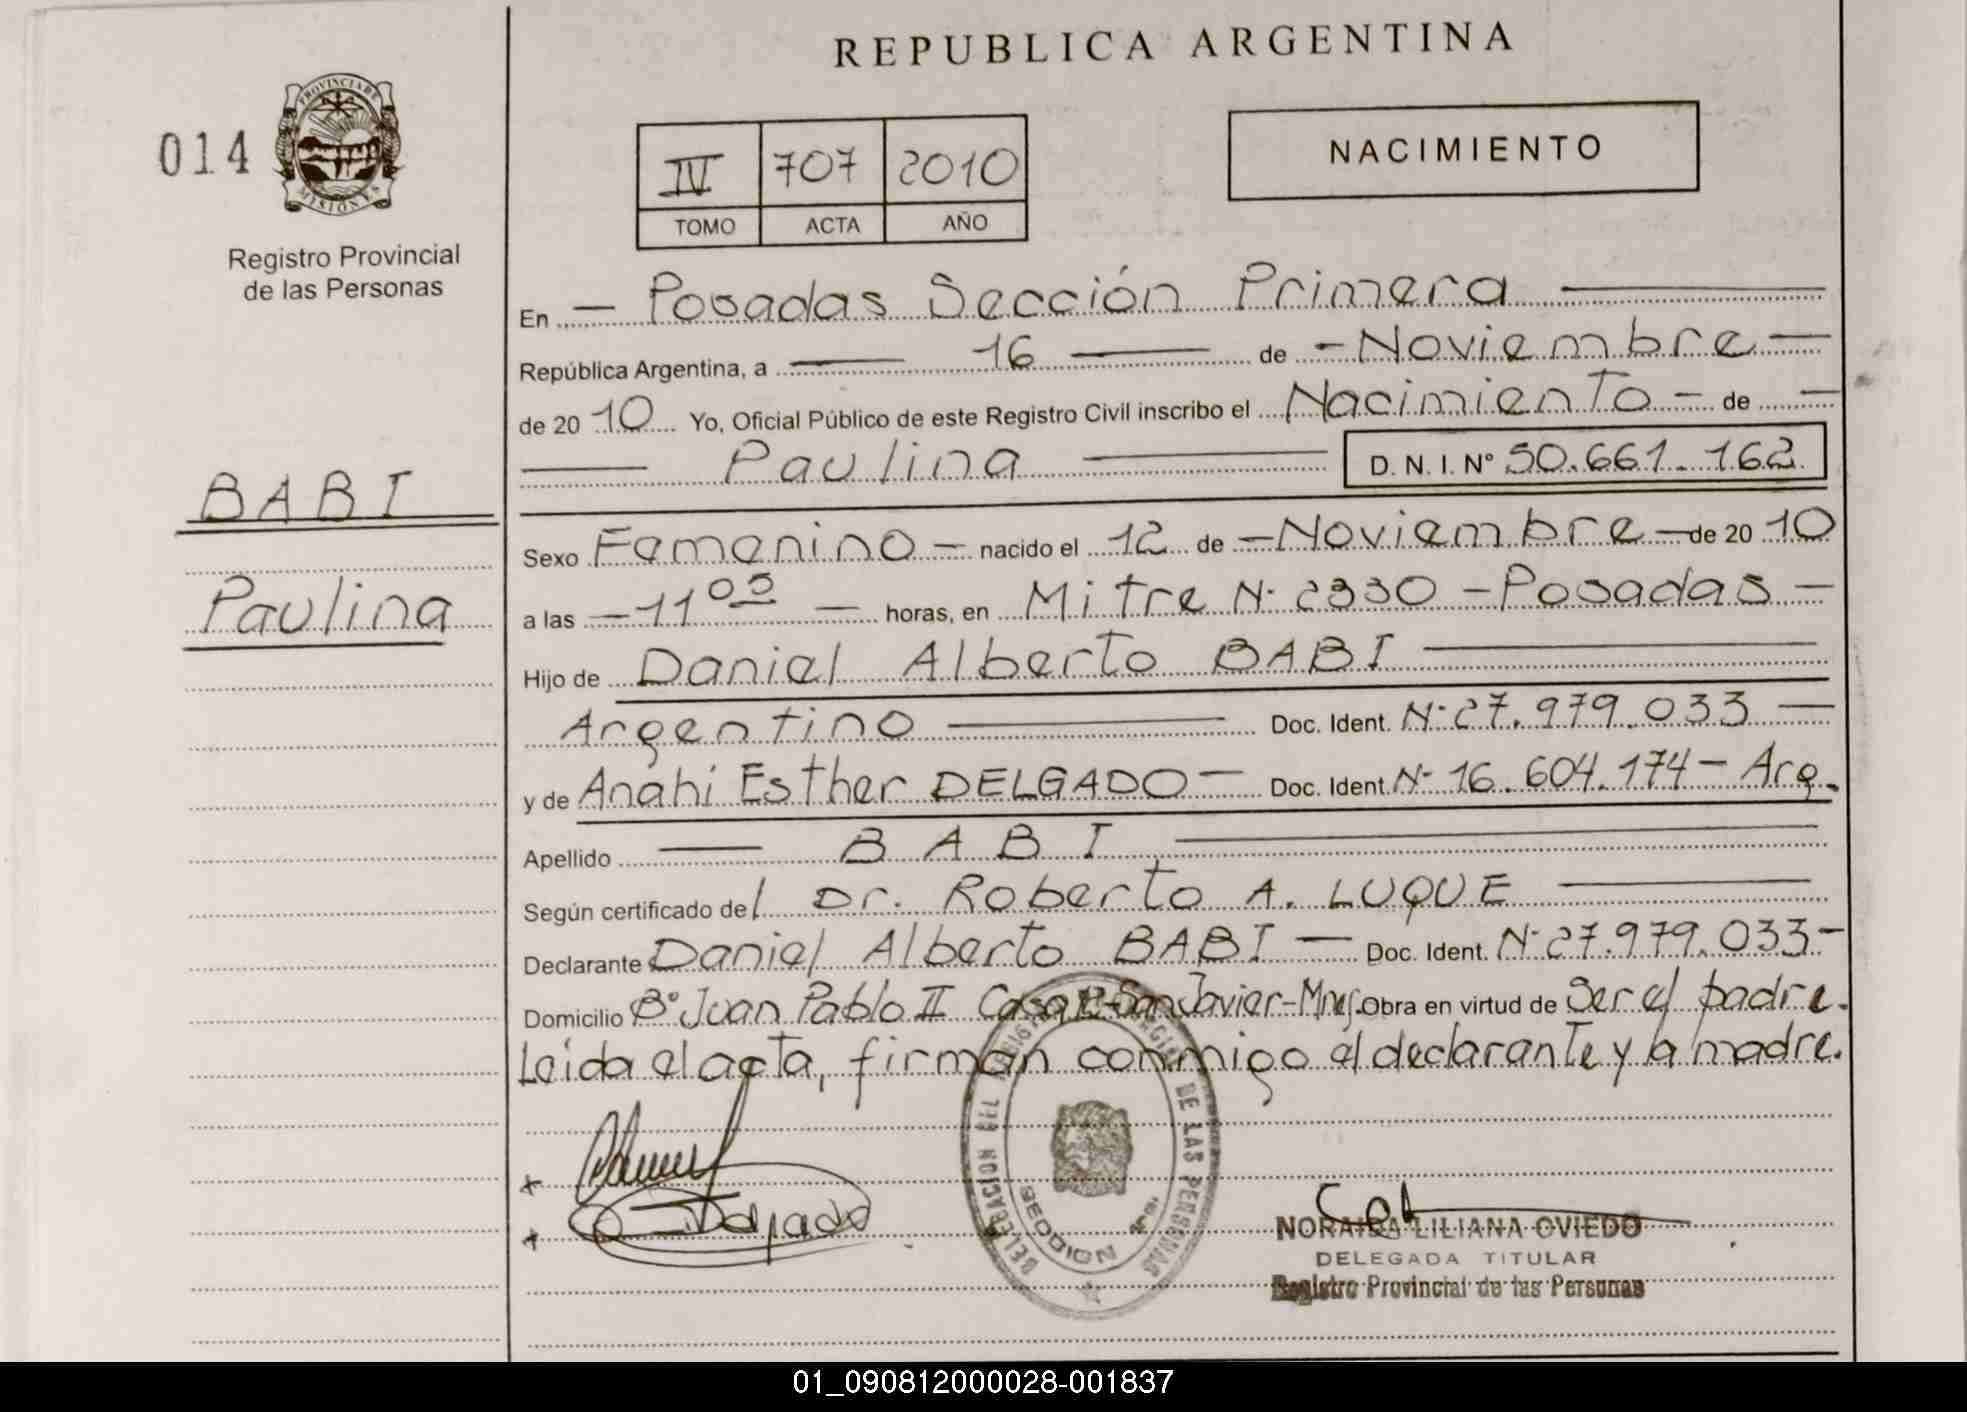 REPUBLICA ARGENTINA
014
PROVINCIA DE
MISIONES
Registro Provincial
de las Personas
IV 707 2010
TOMO ACTA AÑO
NACIMIENTO
En Posadas Sección Primera
República Argentina, a 16 de Noviembre
de 2010 Yo, Oficial Público de este Registro Civil inscribo el Nacimiento de
Paulina D. N. I. N° 50.661.162
BABI
Paulina
Sexo Femenino nacido el 12 de Noviembre de 2010
a las 11 05 horas, en Mitre N° 2330 - Posadas
Hijo de Daniel Alberto BABI
Argentino Doc. Ident. N° 27.979.033
y de Anahi Esther DELGADO Doc. Ident. N° 16.604.174 - Arg.
Apellido BABI
Según certificado del Dr. Roberto A. LUQUE
Declarante Daniel Alberto BABI Doc. Ident. N° 27.979.033
Domicilio B° Juan Pablo II Casa San Javier - Mnes. Obra en virtud de Ser el padre.
Leida el acta, firman conmigo el declarante y la madre.
DELEGACION DEL DE LAS PERSONAS
SECCION 1ra.
Delgado
NORAISA LILIANA OVIEDO
DELEGADA TITULAR
Registro Provincial de las Personas
01_090812000028-001837